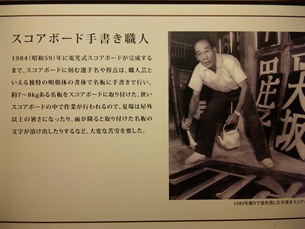 スコアボード手書き職人
1984(昭和59)年に電光式スコアボードが完成する
まで、スコアボードに刻む選手名や得点は、職人芸と
いえる独特の明朝体の書体で名板に手書きで行い、
約7～8kgある名板をスコアボードに取り付けた。狭い
スコアボードの中で作業が行われるので、夏場は屋外
以上の暑さになったり、雨が降ると取り付けた名板の
文字が溶け出したりするなど、大変な苦労を要した。
大坂
田庄
1983年限りで姿を消した手書きスコア